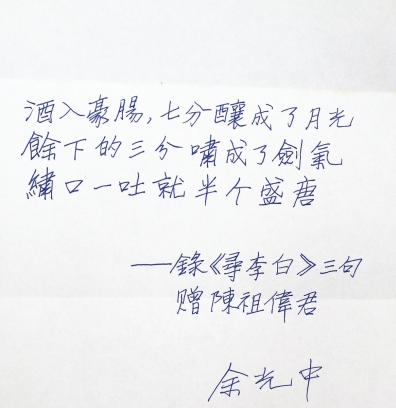 酒入豪腸,七分釀成了月光
餘下的三分嘯成了劍氣
繡口一吐就半个盛唐
──錄《尋李白》三句
赠陳祖偉君
余光中